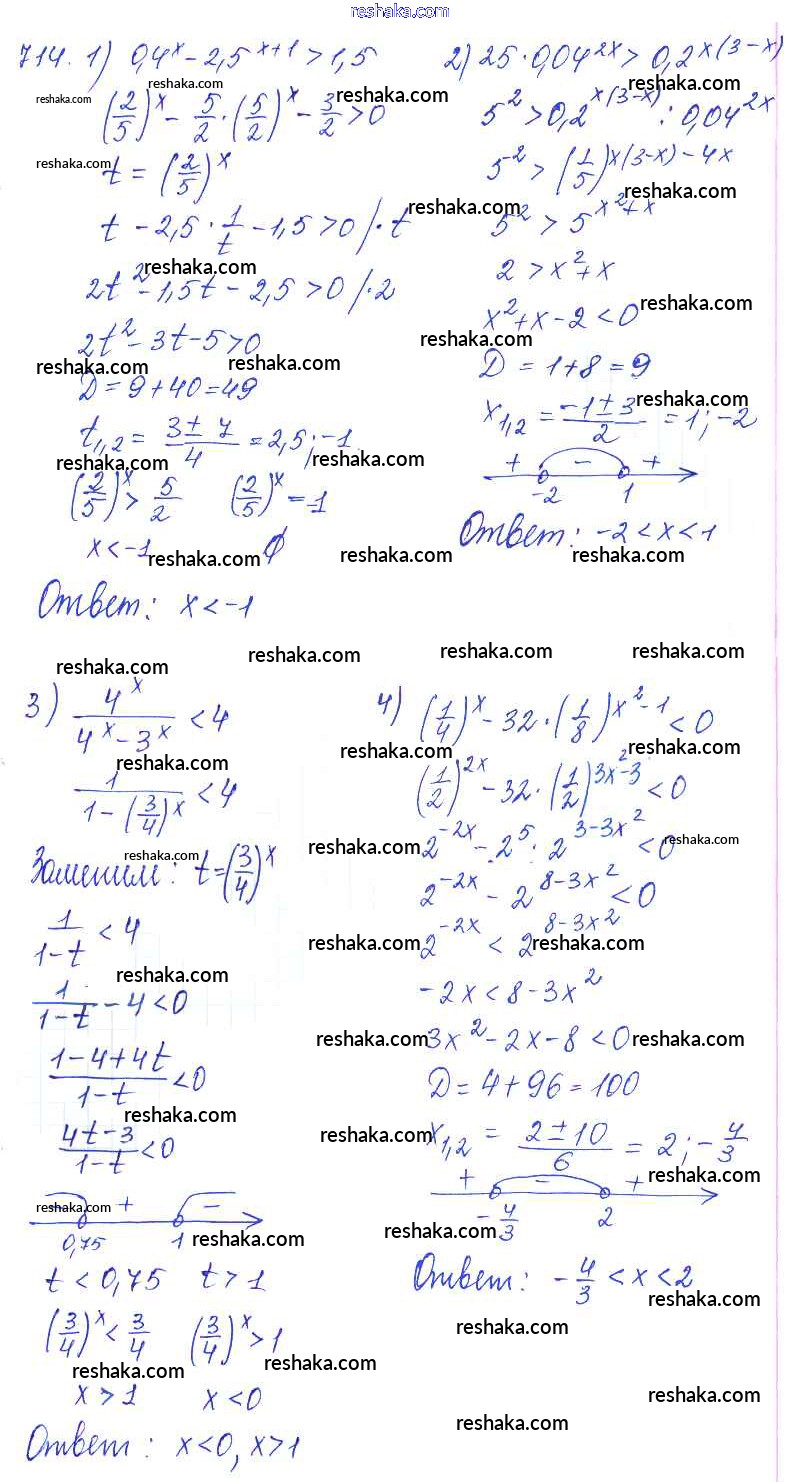 reshaka.com
714. 1) 0,4^x - 2,5^{x+1} > 1,5
(2/5)^x - 5/2 · (5/2)^x - 3/2 > 0
t = (2/5)^x
t - 2,5 · 1/t - 1,5 > 0 /· t
2t^2 - 1,5t - 2,5 > 0 /· 2
2t^2 - 3t - 5 > 0
D = 9 + 40 = 49
t_{1,2} = (3 ± 7)/4 = 2,5; -1
(2/5)^x > 5/2 (2/5)^x = -1
x < -1 ∅
Ответ: x < -1
2) 25 · 0,04^{2x} > 0,2^{x(3-x)}
5^2 > 0,2^{x(3-x)} : 0,04^{2x}
5^{-2} > (1/5)^{x(3-x) - 4x}
5^2 > 5^{x^2+x}
2 > x^2 + x
x^2 + x - 2 < 0
D = 1 + 8 = 9
x_{1,2} = (-1 ± 3)/2 = 1; -2
+ - +
-2 1
Ответ: -2 < x < 1
3) 4^x/(4^x - 3^x) < 4
1/(1 - (3/4)^x) < 4
Заменим: t = (3/4)^x
1/(1-t) < 4
1/(1-t) - 4 < 0
(1 - 4 + 4t)/(1-t) < 0
(4t - 3)/(1-t) < 0
+ -
0,75 1
t < 0,75 t > 1
(3/4)^x < 3/4 (3/4)^x > 1
x > 1 x < 0
Ответ: x < 0, x > 1
4) (1/4)^x - 32 · (1/8)^{x^2-1} < 0
(1/2)^{2x} - 32 · (1/2)^{3x^2-3} < 0
2^{-2x} - 2^5 · 2^{3-3x^2} < 0
2^{-2x} - 2^{8-3x^2} < 0
2^{-2x} < 2^{8-3x^2}
-2x < 8 - 3x^2
3x^2 - 2x - 8 < 0
D = 4 + 96 = 100
x_{1,2} = (2 ± 10)/6 = 2; -4/3
+ - +
-4/3 2
Ответ: -4/3 < x < 2